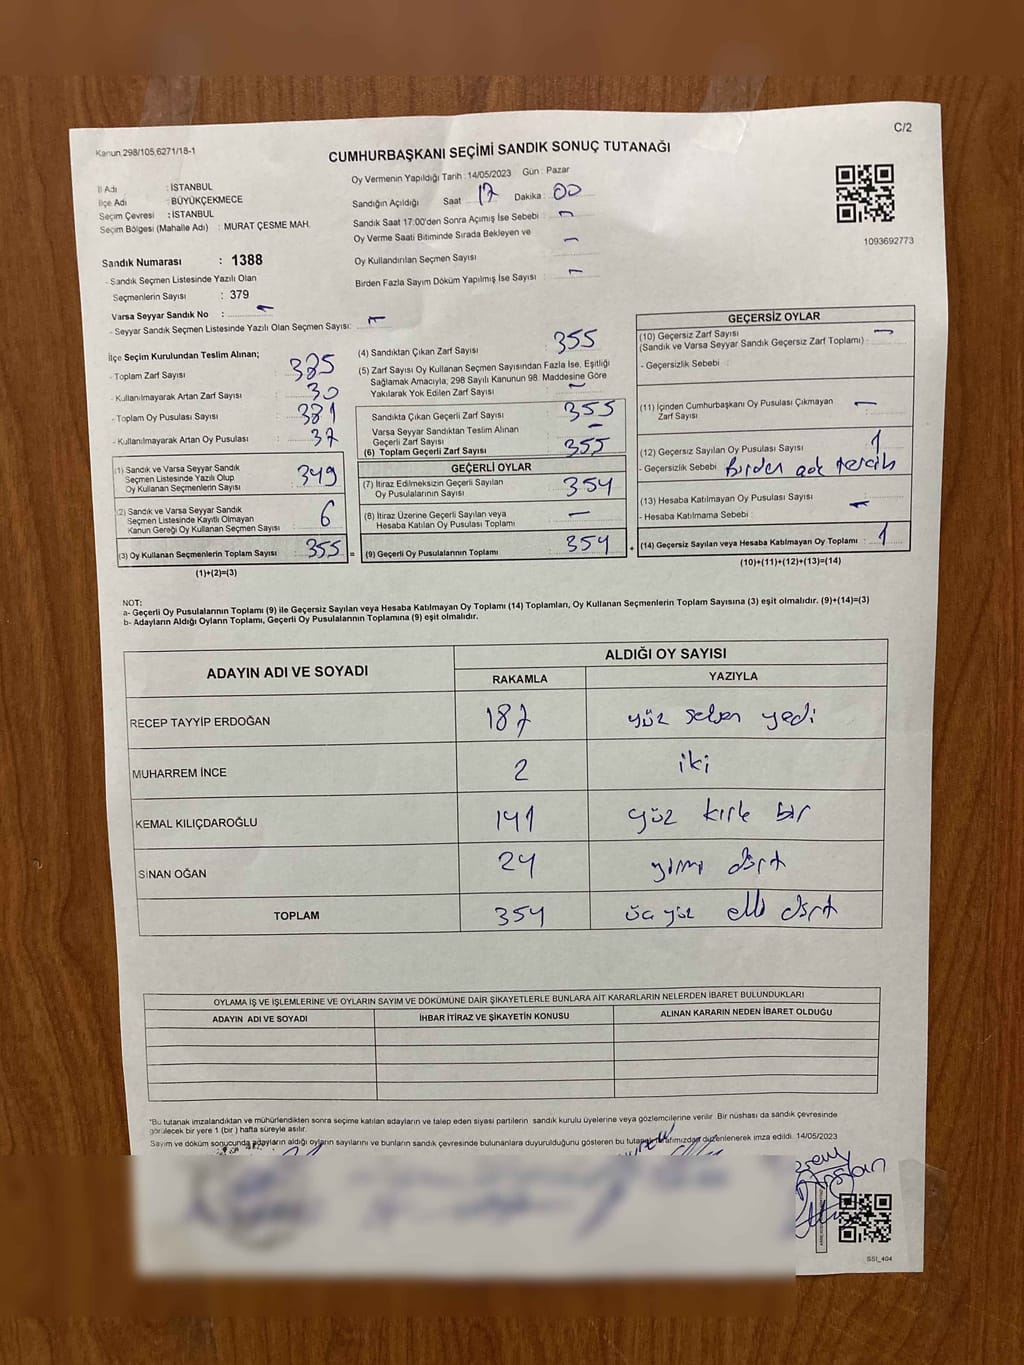 C/2
Kanun 298/105,6271/18-1
CUMHURBAŞKANI SEÇİMİ SANDIK SONUÇ TUTANAĞI
İl Adı : İSTANBUL
İlçe Adı : BÜYÜKÇEKMECE
Seçim Çevresi : İSTANBUL
Seçim Bölgesi (Mahalle Adı) : MURAT ÇESME MAH.
Sandık Numarası : 1388
- Sandık Seçmen Listesinde Yazılı Olan
Seçmenlerin Sayısı : 379
Varsa Seyyar Sandık No : -
- Seyyar Sandık Seçmen Listesinde Yazılı Olan Seçmen Sayısı: -
Oy Vermenin Yapıldığı Tarih : 14/05/2023 Gün : Pazar
Sandığın Açıldığı Saat 17 Dakika : 00
Sandık Saat 17:00'den Sonra Açımış İse Sebebi : -
Oy Verme Saati Bitiminde Sırada Bekleyen ve -
Oy Kullandırılan Seçmen Sayısı
Birden Fazla Sayım Döküm Yapılmış İse Sayısı : -
1093692773
İlçe Seçim Kurulundan Teslim Alınan;
- Toplam Zarf Sayısı : 385
- Kullanılmayarak Artan Zarf Sayısı : 30
- Toplam Oy Pusulası Sayısı : 381
- Kullanılmayarak Artan Oy Pusulası : 37
(1) Sandık ve Varsa Seyyar Sandık
Seçmen Listesinde Yazılı Olup
Oy Kullanan Seçmenlerin Sayısı : 349
(2) Sandık ve Varsa Seyyar Sandık
Seçmen Listesinde Kayıtlı Olmayan
Kanun Gereği Oy Kullanan Seçmen Sayısı : 6
(3) Oy Kullanan Seçmenlerin Toplam Sayısı : 355 =
(1)+(2)=(3)
(4) Sandıktan Çıkan Zarf Sayısı : 355
(5) Zarf Sayısı Oy Kullanan Seçmen Sayısından Fazla İse, Eşitliği
Sağlamak Amacıyla, 298 Sayılı Kanunun 98. Maddesine Göre
Yakılarak Yok Edilen Zarf Sayısı : -
Sandıkta Çıkan Geçerli Zarf Sayısı : 355
Varsa Seyyar Sandıktan Teslim Alınan
Geçerli Zarf Sayısı : -
(6) Toplam Geçerli Zarf Sayısı : 355
GEÇERLİ OYLAR
(7) İtiraz Edilmeksizin Geçerli Sayılan
Oy Pusulalarının Sayısı : 354
(8) İtiraz Üzerine Geçerli Sayılan veya
Hesaba Katılan Oy Pusulası Toplamı : -
(9) Geçerli Oy Pusulalarının Toplamı : 354 +
GEÇERSİZ OYLAR
(10) Geçersiz Zarf Sayısı -
(Sandık ve Varsa Seyyar Sandık Geçersiz Zarf Toplamı) :
- Geçersizlik Sebebi :
(11) İçinden Cumhurbaşkanı Oy Pusulası Çıkmayan -
Zarf Sayısı :
(12) Geçersiz Sayılan Oy Pusulası Sayısı : 1
- Geçersizlik Sebebi : Birden çok tercih
(13) Hesaba Katılmayan Oy Pusulası Sayısı : -
- Hesaba Katılmama Sebebi :
(14) Geçersiz Sayılan veya Hesaba Katılmayan Oy Toplamı : 1
(10)+(11)+(12)+(13)=(14)
NOT:
a- Geçerli Oy Pusulalarının Toplamı (9) ile Geçersiz Sayılan veya Hesaba Katılmayan Oy Toplamı (14) Toplamları, Oy Kullanan Seçmenlerin Toplam Sayısına (3) eşit olmalıdır. (9)+(14)=(3)
b- Adayların Aldığı Oyların Toplamı, Geçerli Oy Pusulalarının Toplamına (9) eşit olmalıdır.
ADAYIN ADI VE SOYADI ALDIĞI OY SAYISI
RAKAMLA YAZIYLA
RECEP TAYYİP ERDOĞAN 187 yüz seksen yedi
MUHARREM İNCE 2 iki
KEMAL KILIÇDAROĞLU 141 yüz kırk bir
SİNAN OĞAN 24 yirmi dört
TOPLAM 354 üç yüz elli dört
OYLAMA İŞ VE İŞLEMLERİNE VE OYLARIN SAYIM VE DÖKÜMÜNE DAİR ŞİKAYETLERLE BUNLARA AİT KARARLARIN NELERDEN İBARET BULUNDUKLARI
ADAYIN ADI VE SOYADI İHBAR İTİRAZ VE ŞİKAYETİN KONUSU ALINAN KARARIN NEDEN İBARET OLDUĞU
*Bu tutanak imzalandıktan ve mühürlendikten sonra seçime katılan adayların ve talep eden siyasi partilerin sandık kurulu üyelerine veya gözlemcilerine verilir. Bir nüshası da sandık çevresinde
görülecek bir yere 1 (bir) hafta süreyle asılır.
Sayım ve döküm sonucunda adayların aldığı oyların sayılarını ve bunların sandık çevresinde bulunanlara duyurulduğunu gösteren bu tutanak tarafımızdan düzenlenerek imza edildi. 14/05/2023
Arslan
SSI_404